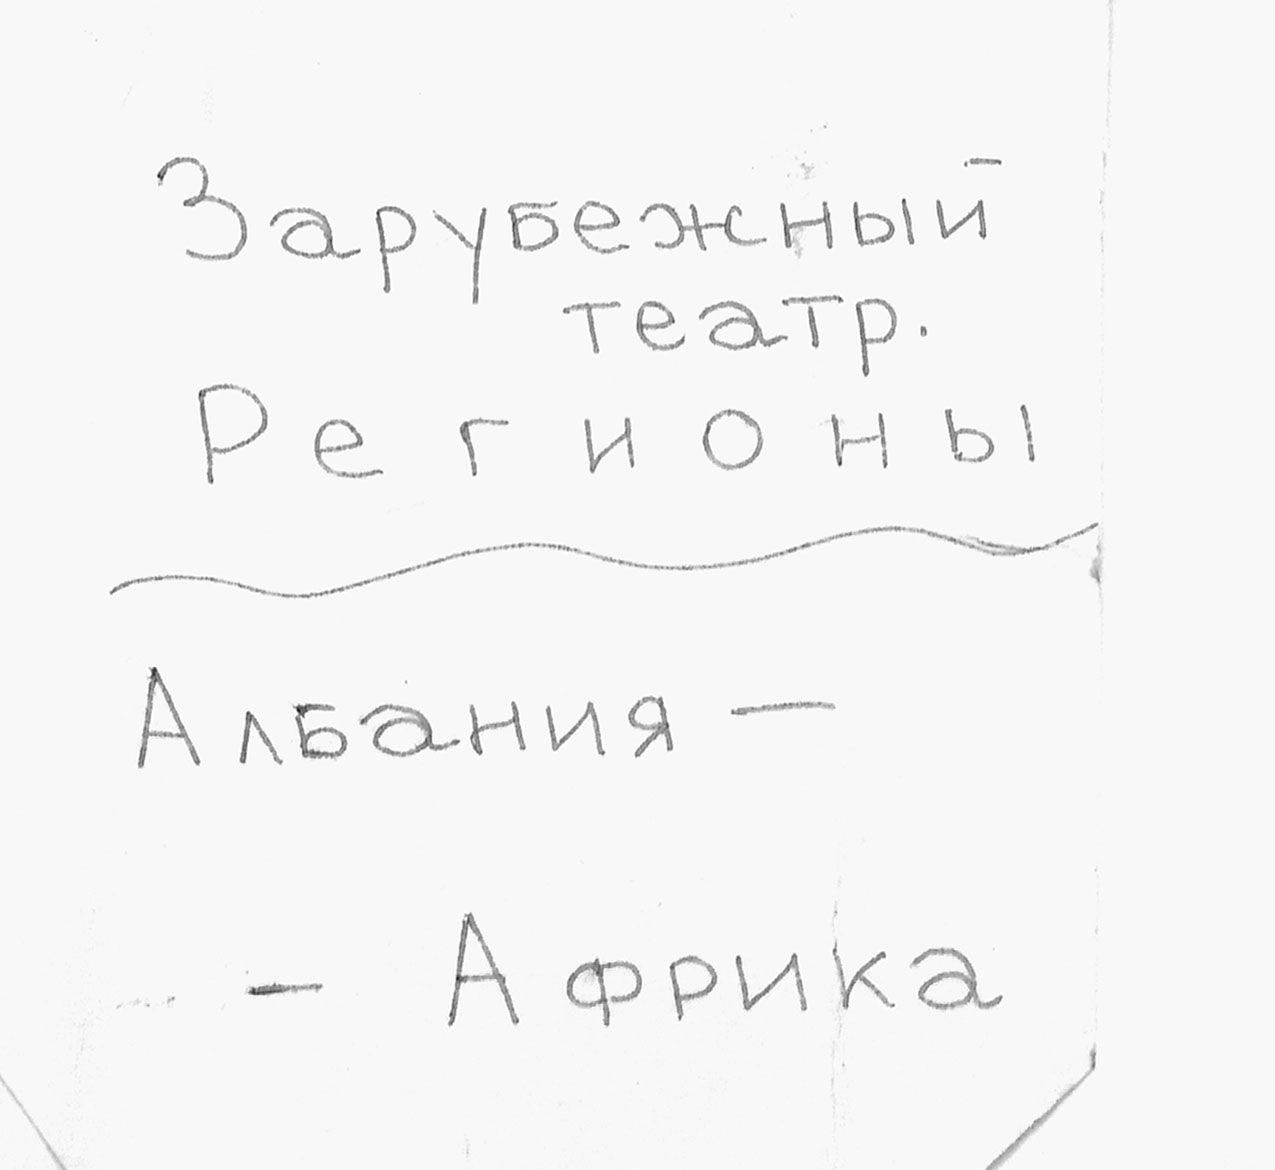 Зарубежный
театр.
Регионы
Албания —
- Африка